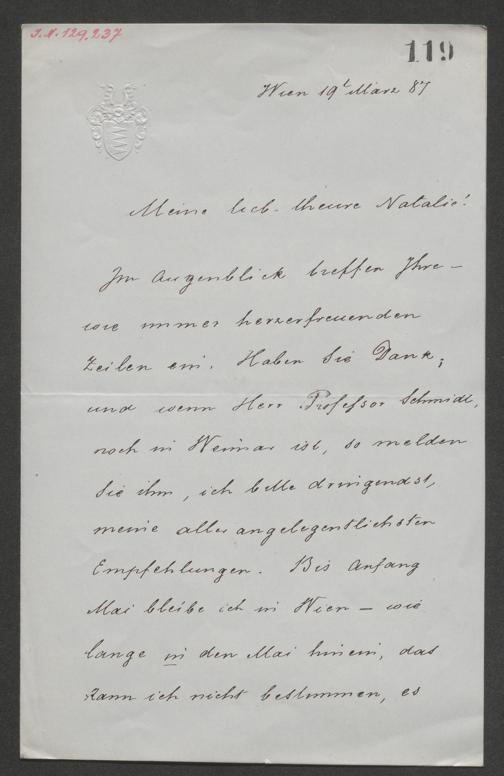 J.N. 129.237
119
Wien 19t März 87
Meine lieb-theure Natalie!
Im Augenblick treffen Ihre –
wie immer herzerfreuenden
Zeilen ein. Haben Sie Dank;
und wenn Herr Professor Schmidt,
noch in Weimar ist, so melden
Sie ihm, ich bitte dringendst,
meine aller angelegentlichsten
Empfehlungen. Bis Anfang
Mai bleibe ich in Wien – wie
lange in den Mai hinein, das
kann ich nicht bestimmen, es